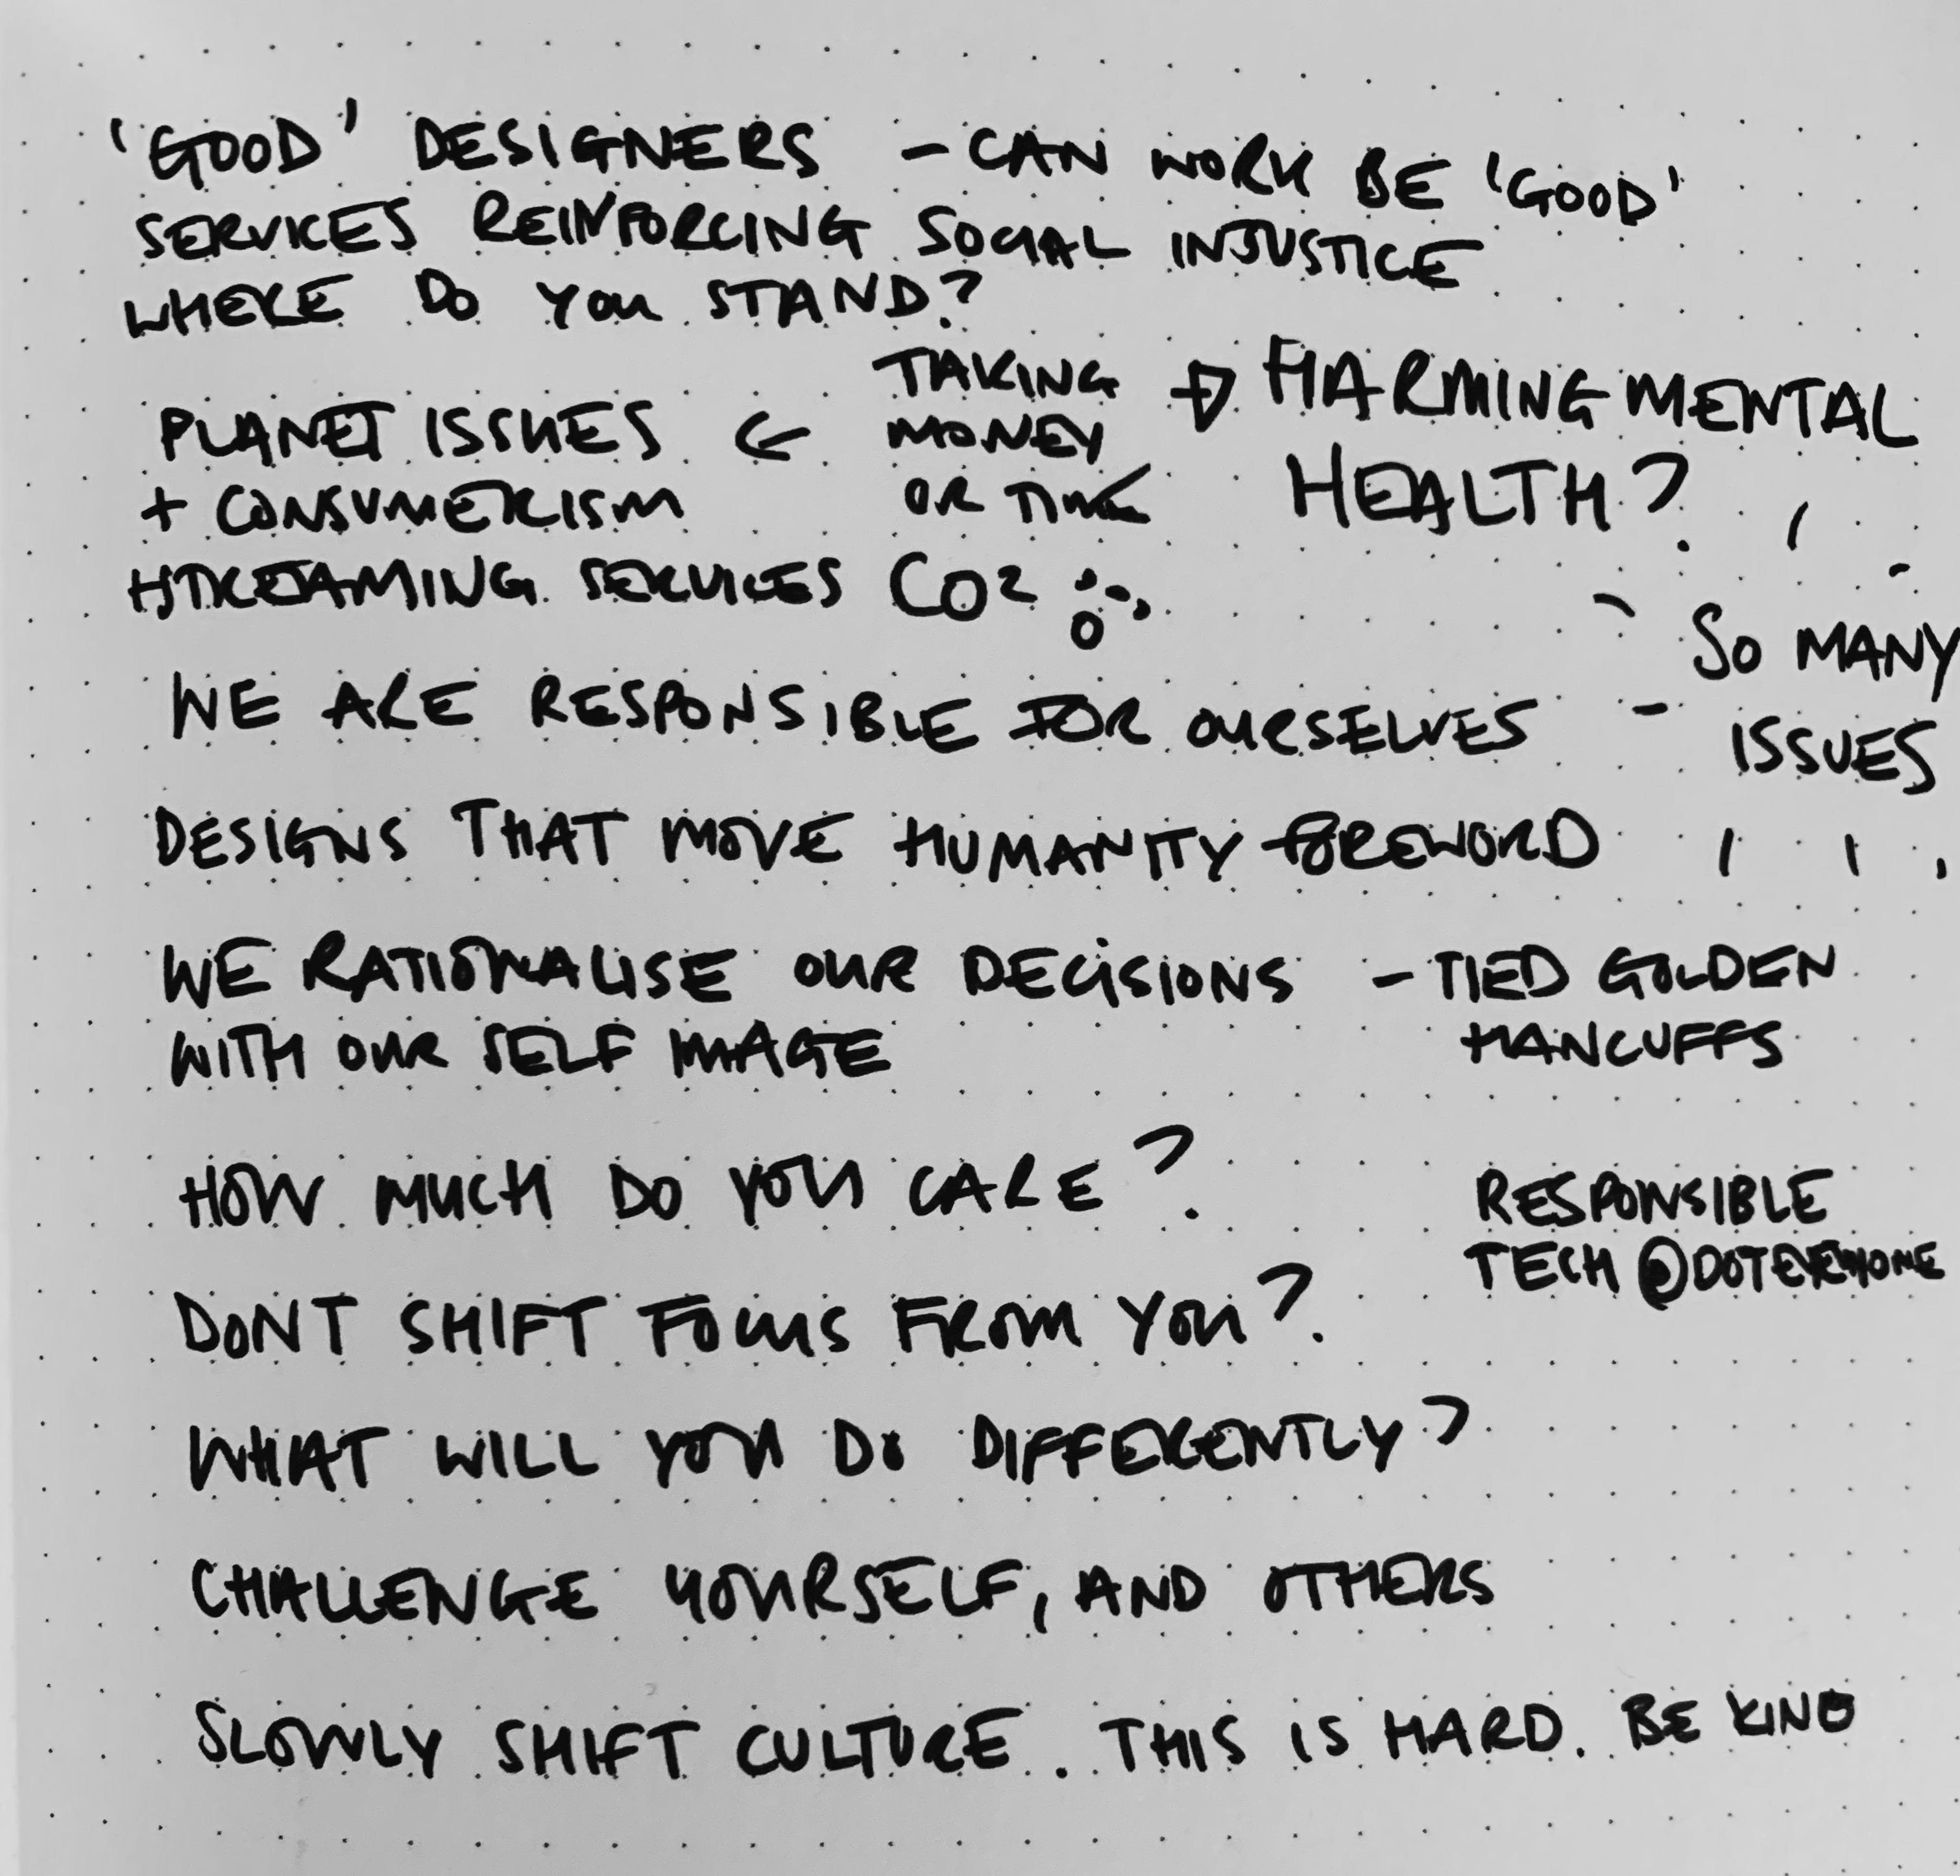 'GOOD' DESIGNERS - CAN WORK BE 'GOOD'
SERVICES REINFORCING SOCIAL INJUSTICE
WHERE DO YOU STAND?
TAKING
MONEY
OR TIME
→ HARMING MENTAL
HEALTH?
PLANET ISSUES ←
+ CONSUMERISM
STREAMING SERVICES CO2
SO MANY
ISSUES
WE ARE RESPONSIBLE FOR OURSELVES
DESIGNS THAT MOVE HUMANITY FOREWORD
WE RATIONALISE OUR DECISIONS - TIED GOLDEN
HANCUFFS
WITH OUR SELF IMAGE
HOW MUCH DO YOU CARE?
RESPONSIBLE
TECH @DOTEVERYONE
DONT SHIFT FOCUS FROM YOU?
WHAT WILL YOU DO DIFFERENTLY?
CHALLENGE YOURSELF, AND OTHERS
SLOWLY SHIFT CULTURE. THIS IS HARD. BE KIND